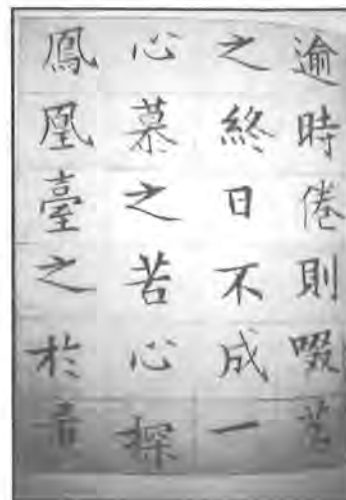 逾時倦則啜茗
之終日不成一
心慕之苦心探
鳳凰臺之於